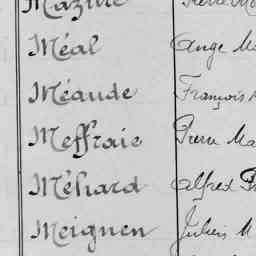 Méal Ange
Méaude François
Meffraie Pierre Ma
Méhard Alfred
Meignen Julien M